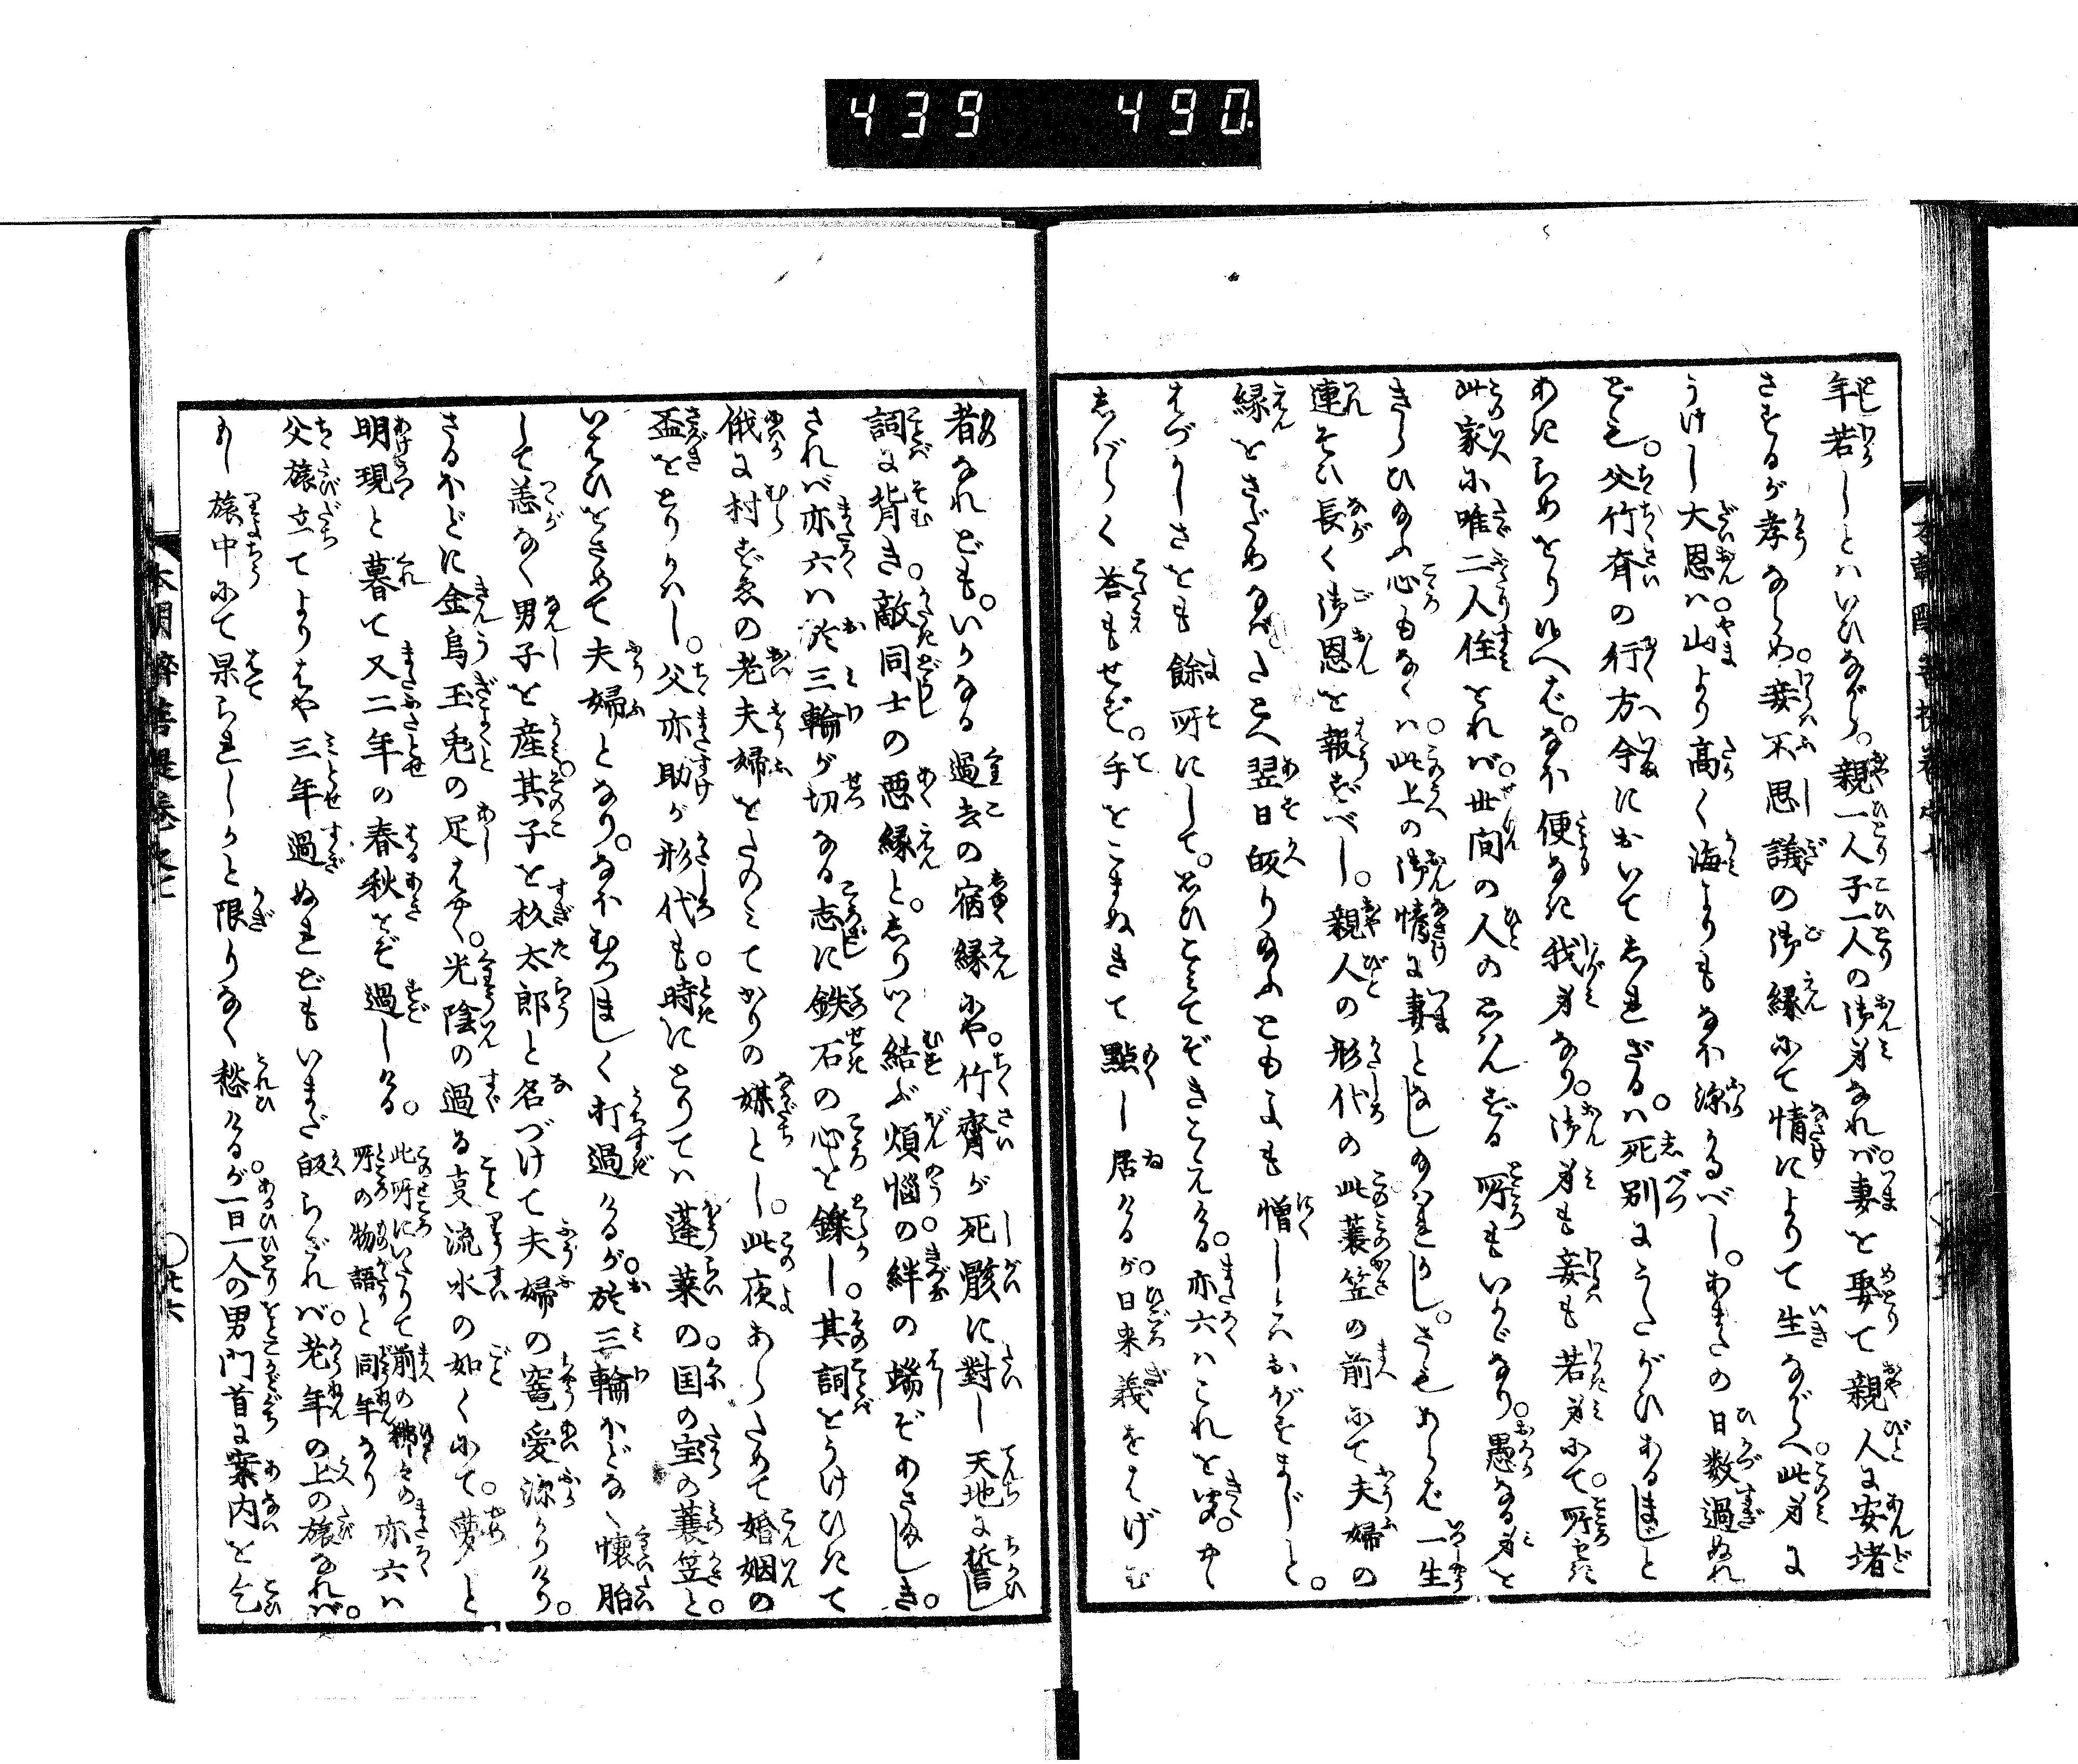 439 490
年若しとハいひながら。親一人子一人の御身なれバ。妻を娶て親人に安堵
さするが孝ならめ。妾不思議の御縁にて情によりて生ながらへ。此身に
うけし大恩ハ。山より高く海よりもなほ深かるべし。あまたの日数過ぬれ
ども。父竹斎の行方今において志れざるハ。死別にうたがひあるまじと
あきらめとり候へば。なほ便なき我身なり。御身も妾も若身にて。所せき
此家に唯二人住をれバ。世間の人の思はんずる所もいかゞなり。愚なる身を
きらひ給ふ心もなくハ。此上の御情に妻となし給はれかし。さもあらば一生
連そひ長く御恩を報ずべし。親人の形代の此蓑笠の前にて夫婦の
縁をさだめなバ。たとへ翌日皈り給ふともよも憎しとハおぼすまじと。
はづかしさも余所にして。思ひこみてぞきこえける。亦六ハこれを聞。
志ばらく答もせず。手をこまぬきて點し居けるが。日来義をはげむ
者なれども。いかなる過去の宿縁にや。竹齋が死骸に對し天地に誓し
詞に背き。敵同士の悪縁と。志りつゝ結ぶ煩悩の絆の端ぞあさましき。
されバ亦六ハ於三輪が切なる志に鉄石の心を鑠し。其詞をうけひきて
俄に村ずゑの老夫婦をたのみてかりの媒とし。此夜あらためて婚姻の
盃をとりかハし。父亦助が形代も。時にとりてハ蓬莱の。国の宝の蓑笠と。
いはひをさめて夫婦となり。なほむつましく打過けるが。於三輪ほどなく懐胎
して恙なく男子を産。其子を杦太郎と名づけて夫婦の寵愛深かりけり。
さるほどに金烏玉兎の足はやく。光陰の過る事流水の如くにて。夢と
明現と暮て又二年の春秋をぞ過しける。此所にいたりて前の柳々の亦六ハ
所の物語と同年なり
父旅立てよりはや三年過ぬれどもいまだ皈らざれバ。老年の上の旅なれバ。
もし旅中にて果られしかと限りなく愁けるが。一日一人の男門首に案内を乞
本朝酔菩提巻之七
廿六